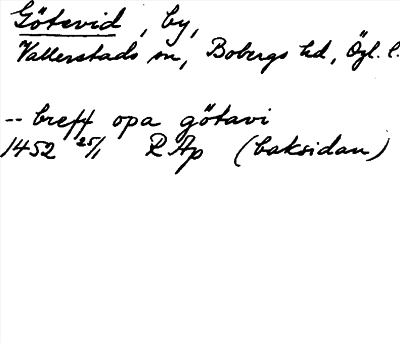 Götevid, by,
Vallerstads sn, Bobergs hd, Ögl. l.
-- breff opa götavi
1452 25/1 RAp (baksidan)